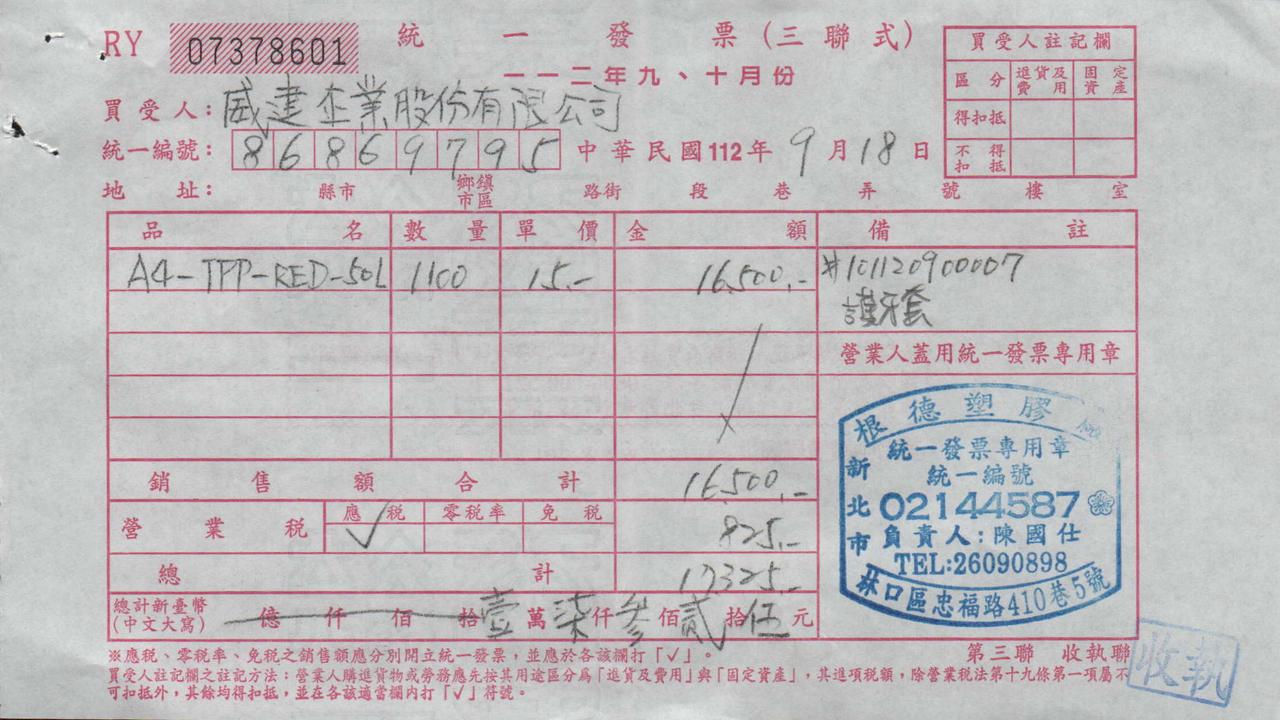 RY 07378601 統一發票(三聯式)
一一二年九、十月份
買受人:威建企業股份有限公司
統一編號:86869795 中華民國112年9月18日
地址: 縣市 鄉鎮市區 路街 段 巷 弄 號 樓 室
買受人註記欄
區分 進貨及費用 固定資產
得扣抵
不得扣抵
品名 數量 單價 金額 備註
A4-TPP-RED-50L 1100 15.- 16,500.- #101120900007
護牙套
營業人蓋用統一發票專用章
銷售額合計 16,500.-
營業稅 應稅 ✓ 零稅率 免稅 825.-
總計 17325.-
總計新臺幣(中文大寫) 億 仟 佰 拾 壹萬柒仟參佰貳拾伍元
根德塑膠廠
統一發票專用章
統一編號
新北市
02144587
負責人:陳國仕
TEL:26090898
林口區忠福路410巷5號
※應稅、零稅率、免稅之銷售額應分別開立統一發票,並應於各該欄打「✓」。
第三聯 收執聯
買受人註記欄之註記方法:營業人購進貨物或勞務應先按其用途區分為「進貨及費用」與「固定資產」,其進項稅額,除營業稅法第十九條第一項屬不
可扣抵外,其餘均得扣抵,並在各該適當欄內打「✓」符號。
收執